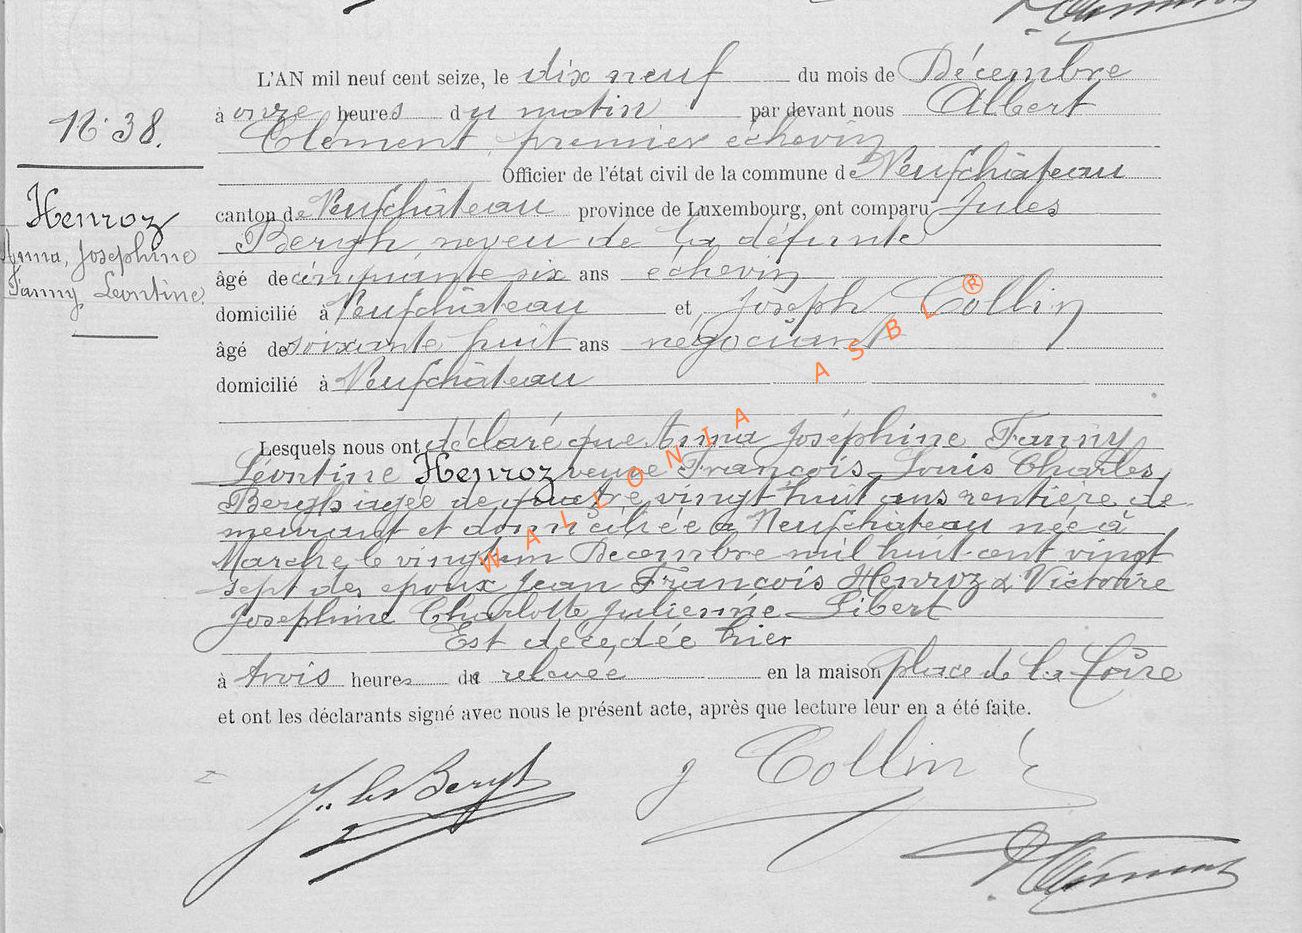 L'AN mil neuf cent seize, le dix neuf du mois de Décembre
à onze heures du matin par devant nous Albert
Clément, premier échevin
Officier de l'état civil de la commune de Neufchâteau
canton de Neufchâteau province de Luxembourg, ont comparu Jules
Bergh neveu de la défunte
âgé de cinquante six ans échevin
domicilié à Neufchâteau et Joseph Collin
âgé de soixante huit ans négociant
domicilié à Neufchâteau
Lesquels nous ont déclaré que Anna Joséphine Fanny
Léontine Henroz veuve François Louis Charles
Bergh agée de quatre vingt huit ans rentière de
meurant et domiciliée à Neufchâteau née à
Marche le vingt un Decembre mil huit cent vingt
sept des epoux Jean François Henroz & Victoire
Josephine Charlotte Julienne Libert
Est décédée hier
à trois heures de relevée en la maison place de la Foire
et ont les déclarants signé avec nous le présent acte, après que lecture leur en a été faite.
Jules Bergh J Collin
AClément
N° 38.
Henroz
Anna, Josephine
Fanny, Leontine
WALLONIA ASBL ®